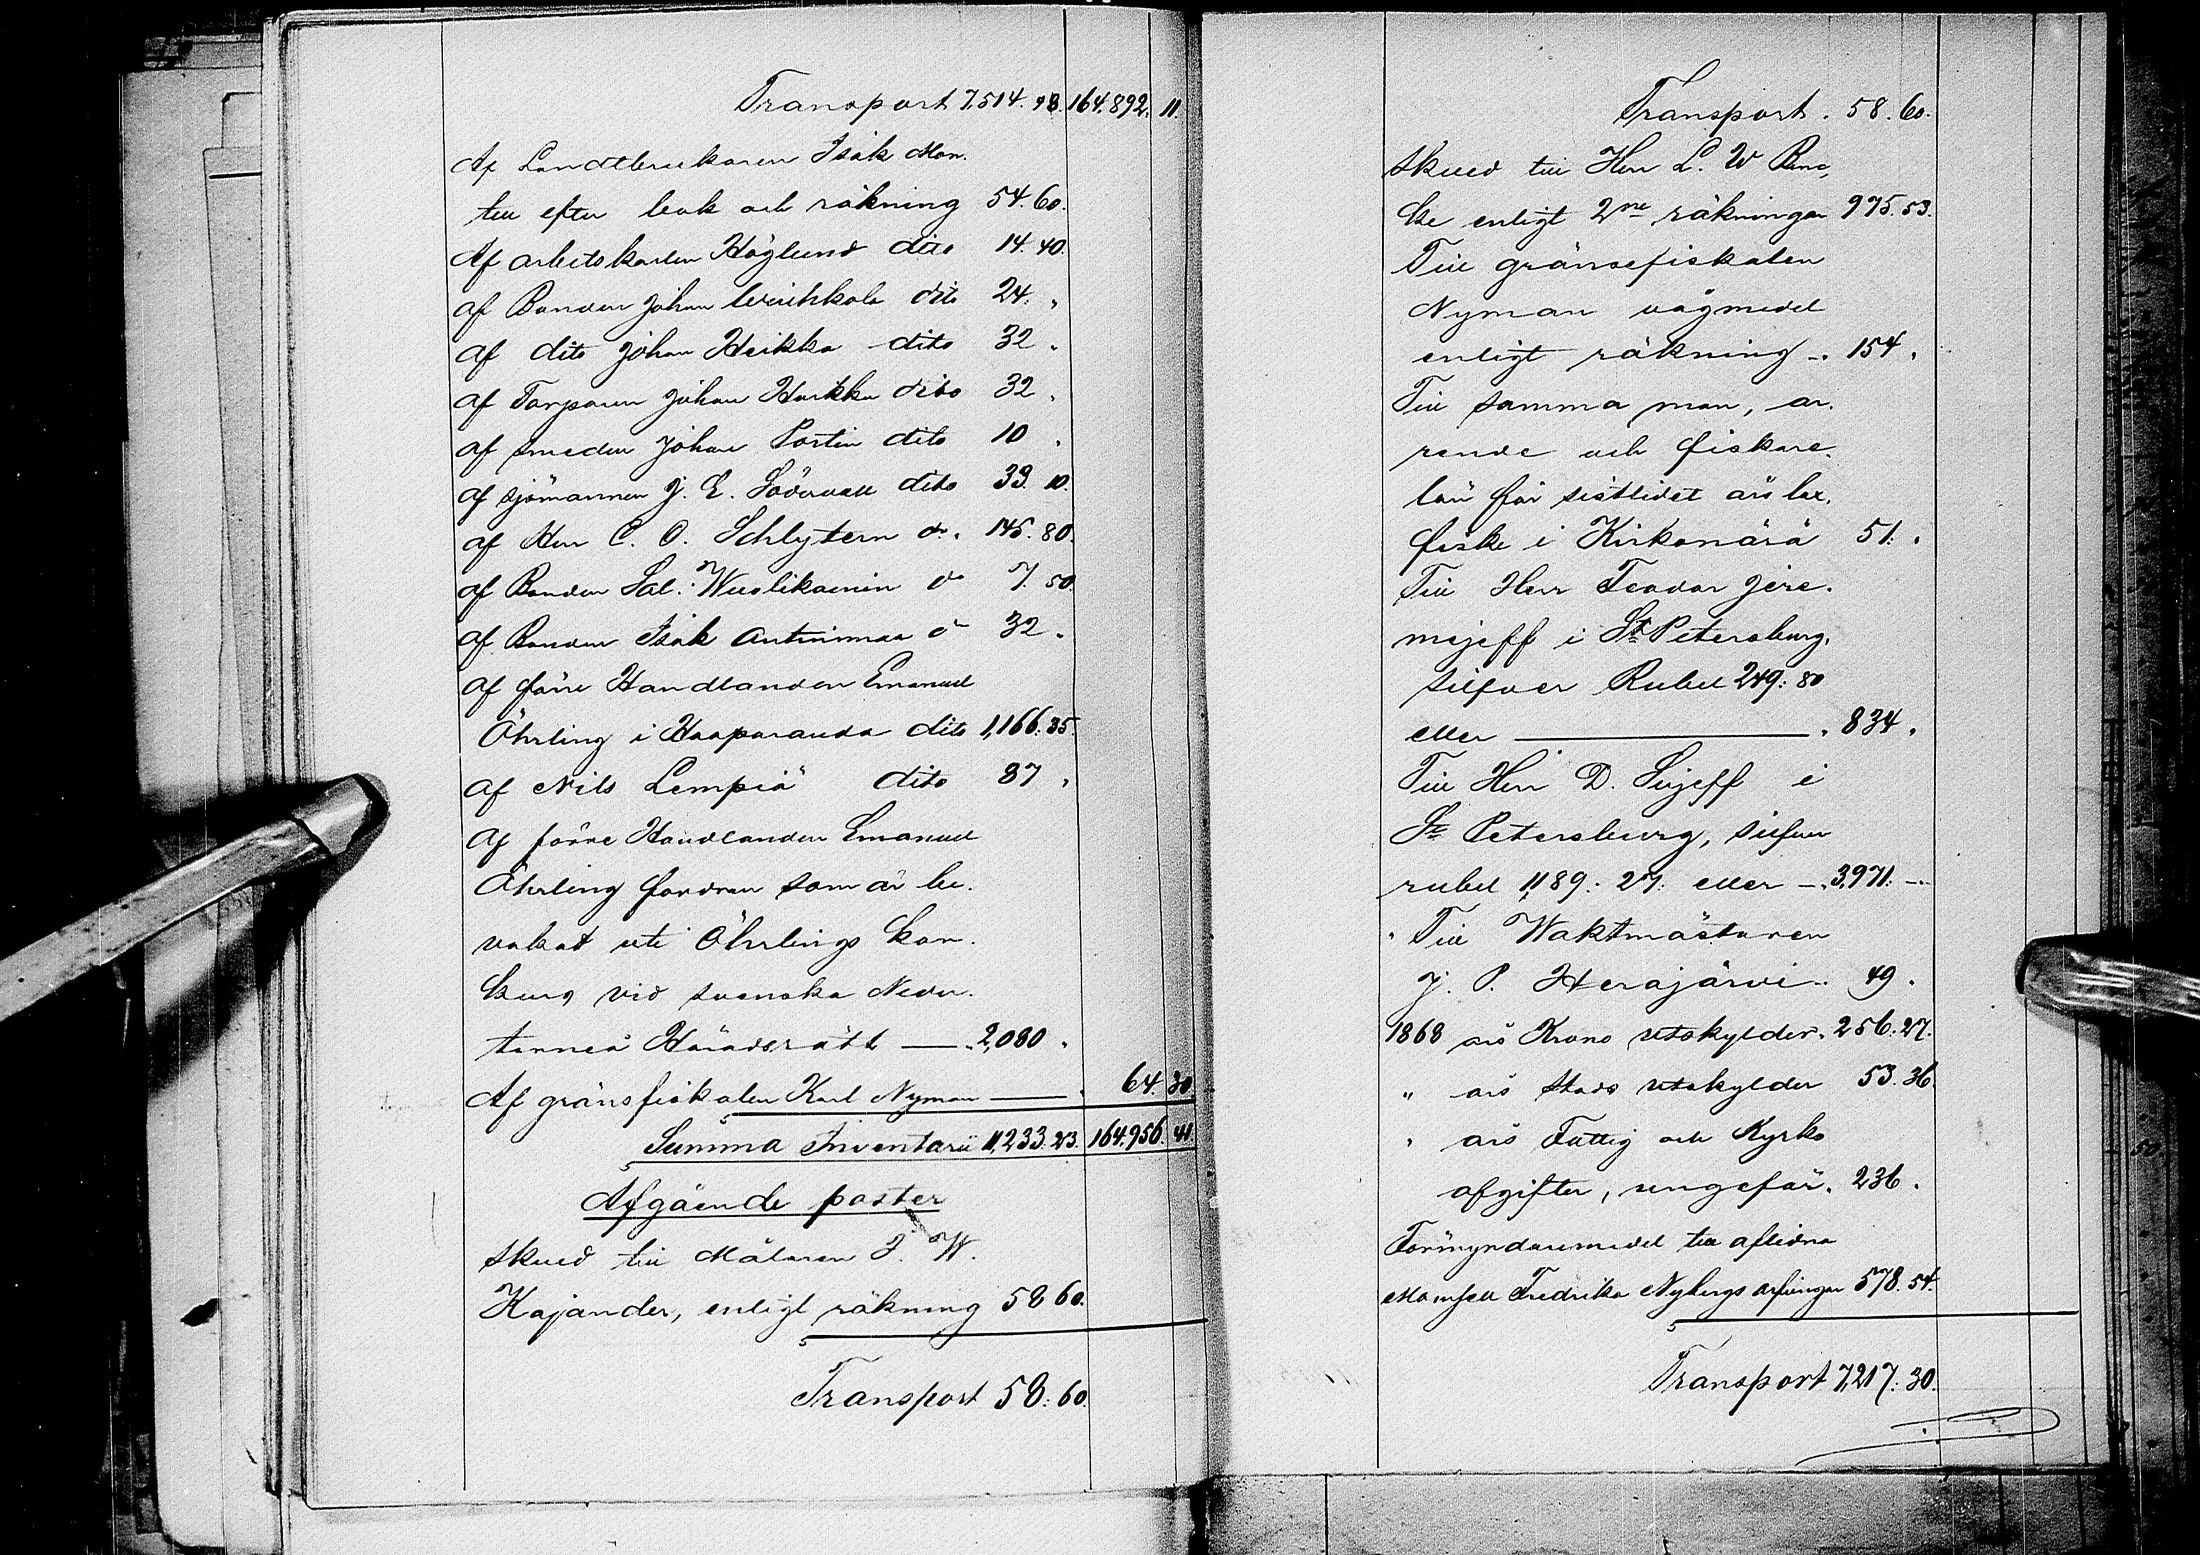 Transport 7,514. 98. 164,892. 11.
Af Landtbrukaren Isak Mon.
till efter bok och räkning 54. 60.
Af arbetskarlen Höglund dito 14. 40.
af Bonden Johan dito 24. "
af dito Johan Heikka dito 32 "
af Torparen Johan Harkku dito 32 "
af smeden Johan Portin dito 10 "
af sjömannen J. E. Södervall dito 33. 10.
af Herr C. O. Schlytern do. 145. 80.
af Bonden Sal. d:o 7. 50.
af Bonden Isak d:o 32 "
af förre Handlanden Emanuel
Öhrling i Haaparanda dito 1,166. 35.
af Nils Lempiä dito 87 "
Af förre Handlanden Emanuel
Öhrling fordran som är be-
vakat uti Öhrlings kon-
kurs vid svenska Neder-
torneå Häradsrätt — 2,080 "
Af gränsfiskalen Karl Nyman — " 64. 30
Summa Inventarii 11,233. 23. 164,956. 41.
Afgående poster
Skuld till Målaren J. W.
Kajander, enligt räkning 58 60.
Transport 58: 60.
Transport . 58. 60.
Skuld till Herr L. W
ke enligt 2ne räkningar 975. 53.
Till gränsefiskalen
Nyman vågmedel
enligt räkning " 154 "
Till samma man, ar-
rende och fiskare-
lön för sistlidet års lax-
fiske i Kirkonärä 51. "
Till Herr Feodor Jere-
mejeff i St Petersburg,
silfver Rubel 249: 80
eller — " 834 "
Till Herr D. Sujeff i
St Petersburg, silfver
rubel 1,189: 27: eller — 3,971: —
" Till Waktmästaren
J. P. Herajärvi " 49 "
1868 års Krono utskylder. 256. 27.
" års Stads utskylder 53. 36.
" års Fattig och Kyrko
afgifter, ungefär. 236 .
Förmyndaremedel till aflidna
Mamsell Fredrika Nybergs arfvingar 578. 54.
Transport 7,217: 30.